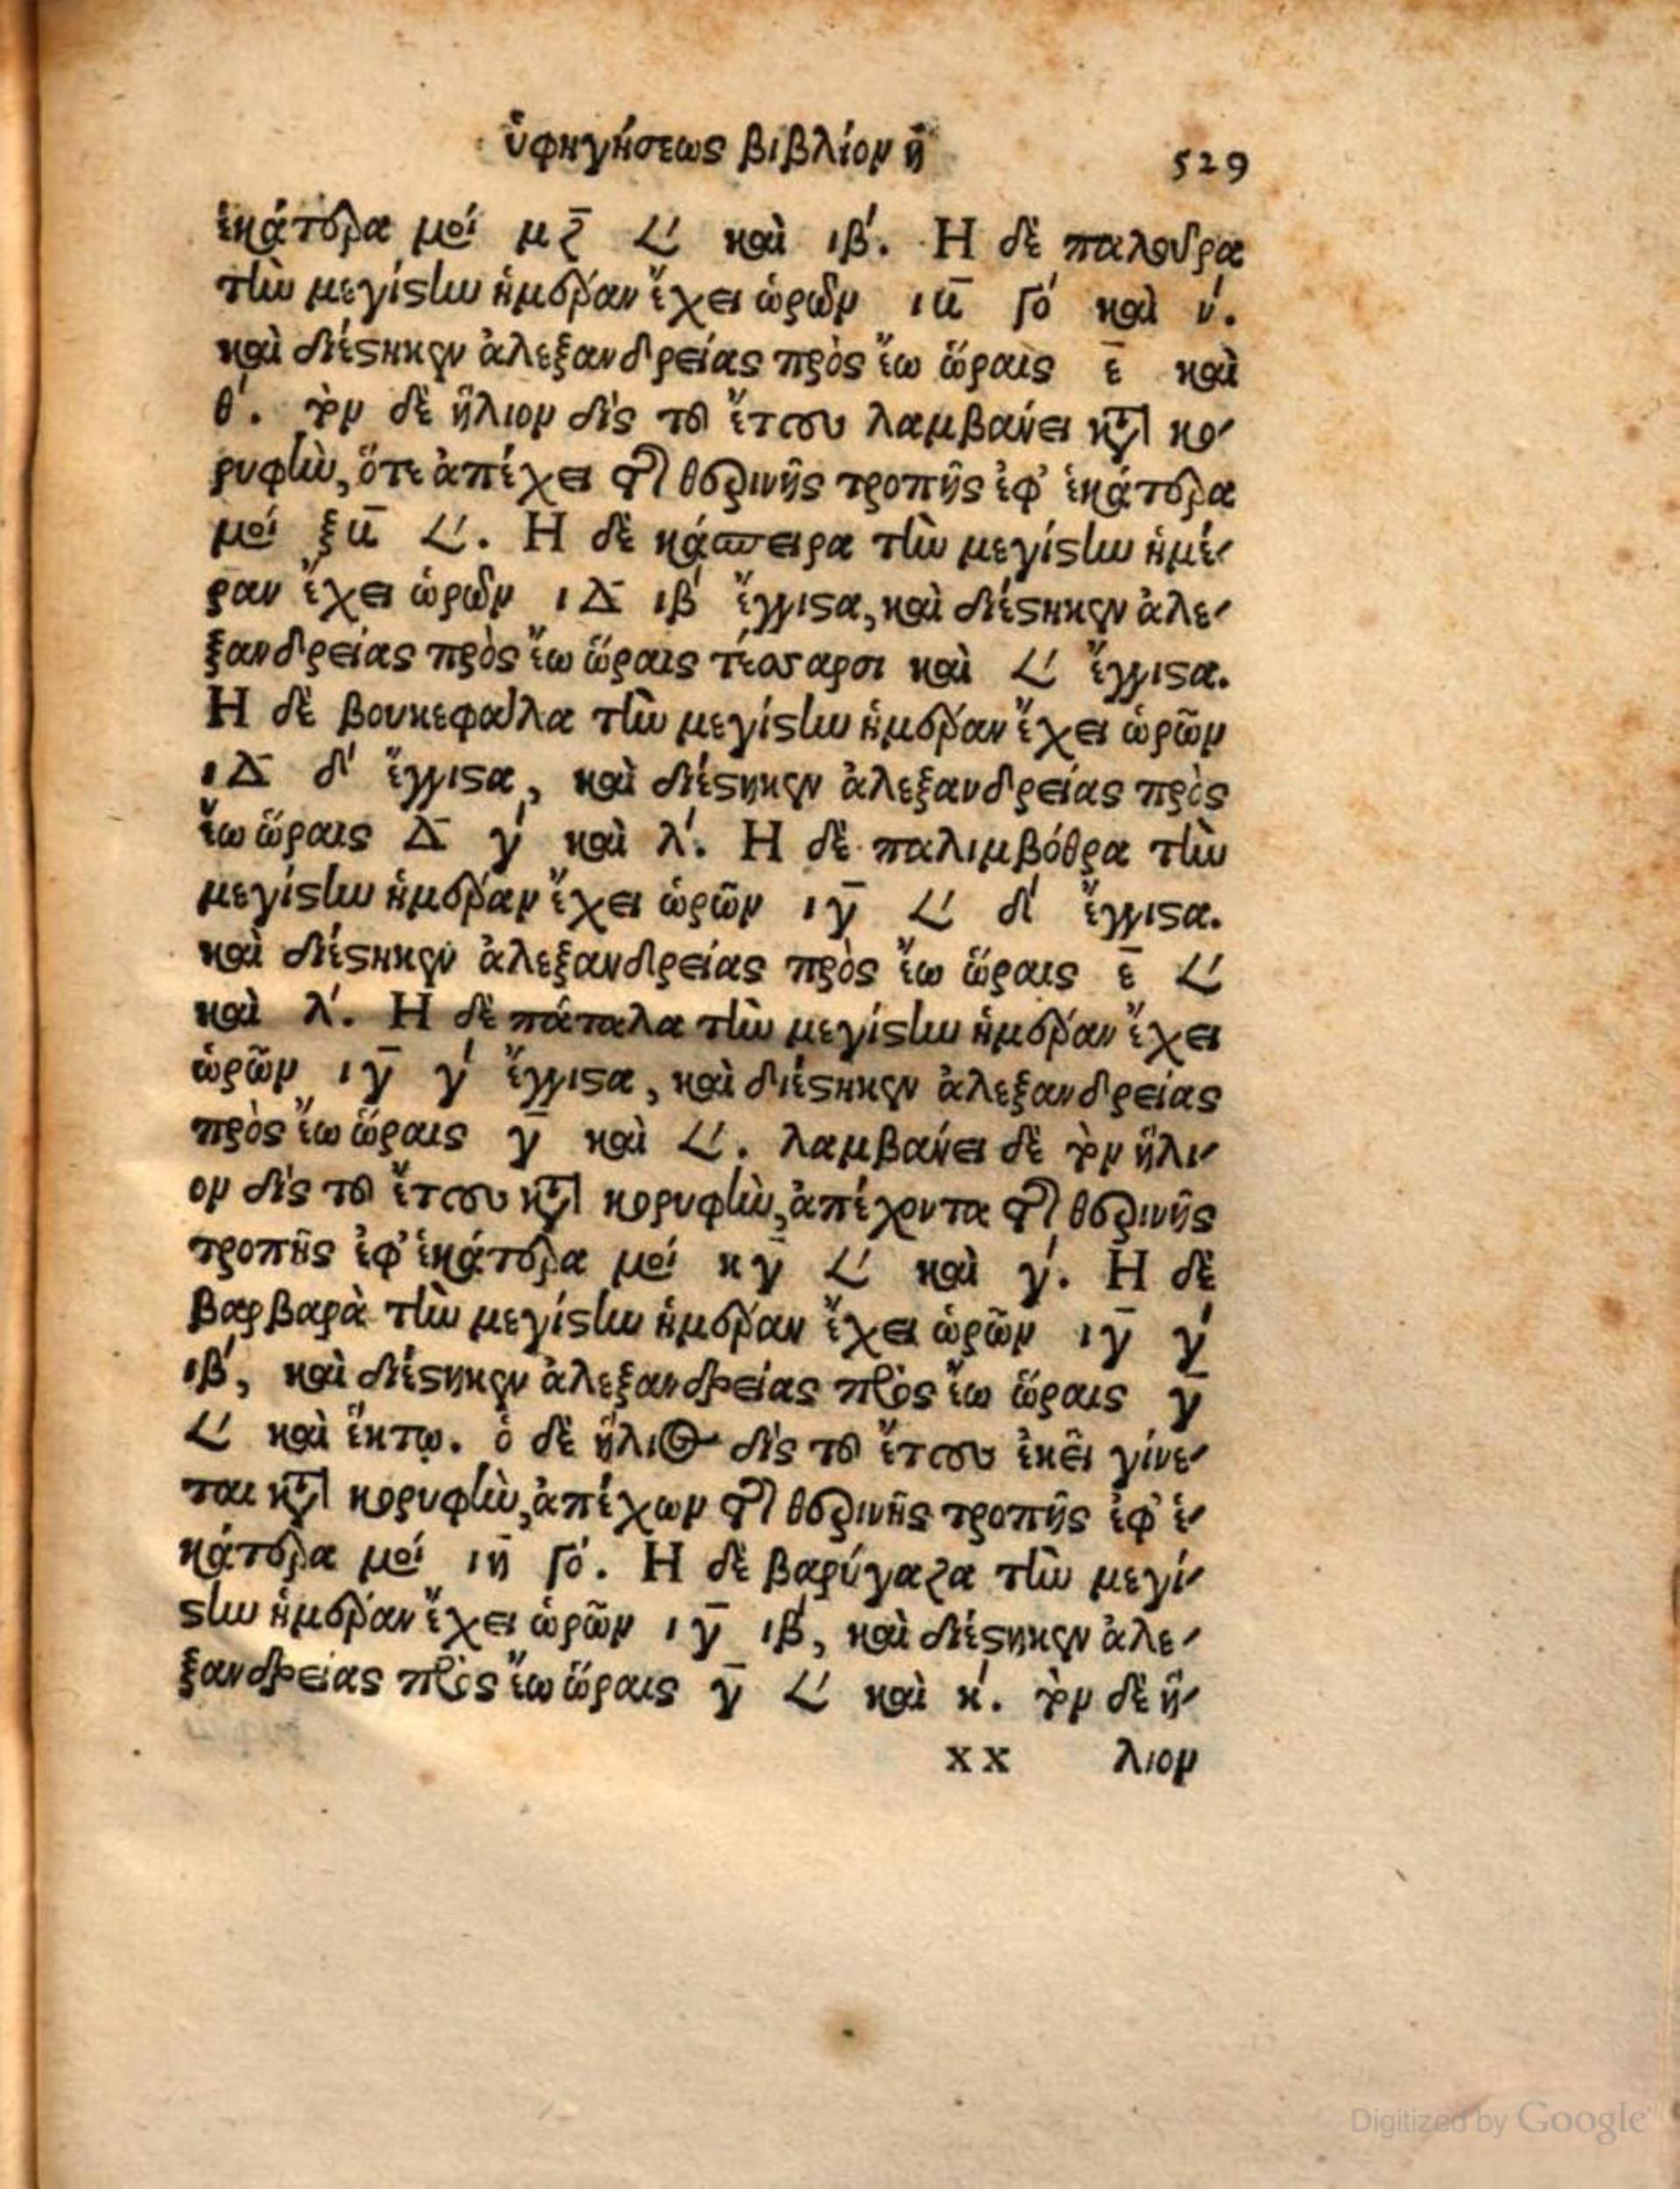 ὑφηγήσεως βιβλίον η̄ 529
ἑκάτερα μοί μζ̄ 𐅵 καὶ ιβ΄. Η δὲ παλουρα
τὴν μεγίστην ἡμέραν ἔχει ὡρῶν ιᾱ γό καὶ ν΄.
καὶ διέστηκεν ἀλεξανδρείας πρὸς ἕω ὥραις ε̄ καὶ
θ΄. τὸν δὲ ἥλιον δὶς τοῦ ἔτους λαμβάνει κατὰ κο-
ρυφὴν, ὅτε ἀπέχει τῆς θερινῆς τροπῆς ἐφ’ ἑκάτερα
μοί ξᾱ 𐅵. Η δὲ κάσπειρα τὴν μεγίστην ἡμέ-
ραν ἔχει ὡρῶν ιΔ̄ ιβ΄ ἔγγιστα, καὶ διέστηκεν ἀλε-
ξανδρείας πρὸς ἕω ὥραις τέσσαρσι καὶ 𐅵 ἔγγιστα.
Η δὲ βουκεφαλα τὴν μεγίστην ἡμέραν ἔχει ὡρῶν
ιΔ̄ δ΄ ἔγγιστα, καὶ διέστηκεν ἀλεξανδρείας πρὸς
ἕω ὥραις Δ̄ γ΄ καὶ λ΄. Η δὲ παλιμβόθρα τὴν
μεγίστην ἡμέραν ἔχει ὡρῶν ιγ̄ 𐅵 δ΄ ἔγγιστα.
καὶ διέστηκεν ἀλεξανδρείας πρὸς ἕω ὥραις ε̄ 𐅵
καὶ λ΄. Η δὲ πάταλα τὴν μεγίστην ἡμέραν ἔχει
ὡρῶν ιγ̄ γ΄ ἔγγιστα, καὶ διέστηκεν ἀλεξανδρείας
πρὸς ἕω ὥραις γ̄ καὶ 𐅵. λαμβάνει δὲ τὸν ἥλι-
ον δὶς τοῦ ἔτους κατὰ κορυφὴν, ἀπέχοντα τῆς θερινῆς
τροπῆς ἐφ’ ἑκάτερα μοί κγ̄ 𐅵 καὶ γ΄. Η δὲ
βαρβαρὰ τὴν μεγίστην ἡμέραν ἔχει ὡρῶν ιγ̄ γ΄
ιβ΄, καὶ διέστηκεν ἀλεξανδρείας πρὸς ἕω ὥραις γ̄
𐅵 καὶ ἕκτῳ. ὁ δὲ ἥλιος δὶς τοῦ ἔτους ἐκεῖ γίνε-
ται κατὰ κορυφὴν, ἀπέχων τῆς θερινῆς τροπῆς ἐφ’ ἑ-
κάτερα μοί ιη̄ γό. Η δὲ βαρύγαζα τὴν μεγί-
στην ἡμέραν ἔχει ὡρῶν ιγ̄ ιβ΄, καὶ διέστηκεν ἀλε-
ξανδρείας πρὸς ἕω ὥραις γ̄ 𐅵 καὶ κ΄. τὸν δὲ ἥ-
xx λιον
Digitized by Google